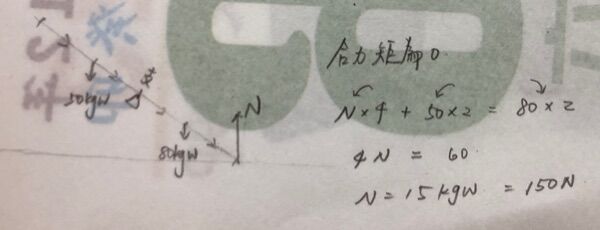 合力矩為0
N×4 + 50×2 = 80×2
4N = 60
N = 15kgw = 150N
支
50kgw
N
80kgw